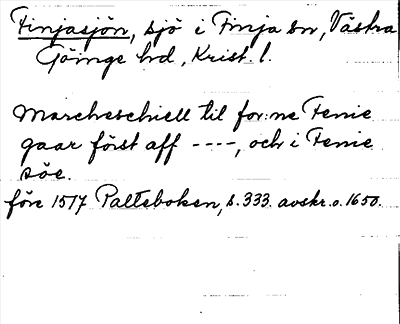 Finjasjön, sjö i Finja sn, Västra
Göinge hd, Krist. l.
Marcheschiell til for:ne Fenie
gaar först aff ----, och i Fenie
söe.
före 1517 Palteboken, s. 333. avskr. o. 1650.